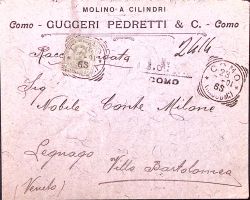 MOLINO A CILINDRI
Como - GUGGERI PEDRETTI & C. - Como
Raccomandata
COMO
COMO
Sig
Nobile Conte Milone
Legnago
Villa Bartolomea
(Veneto)